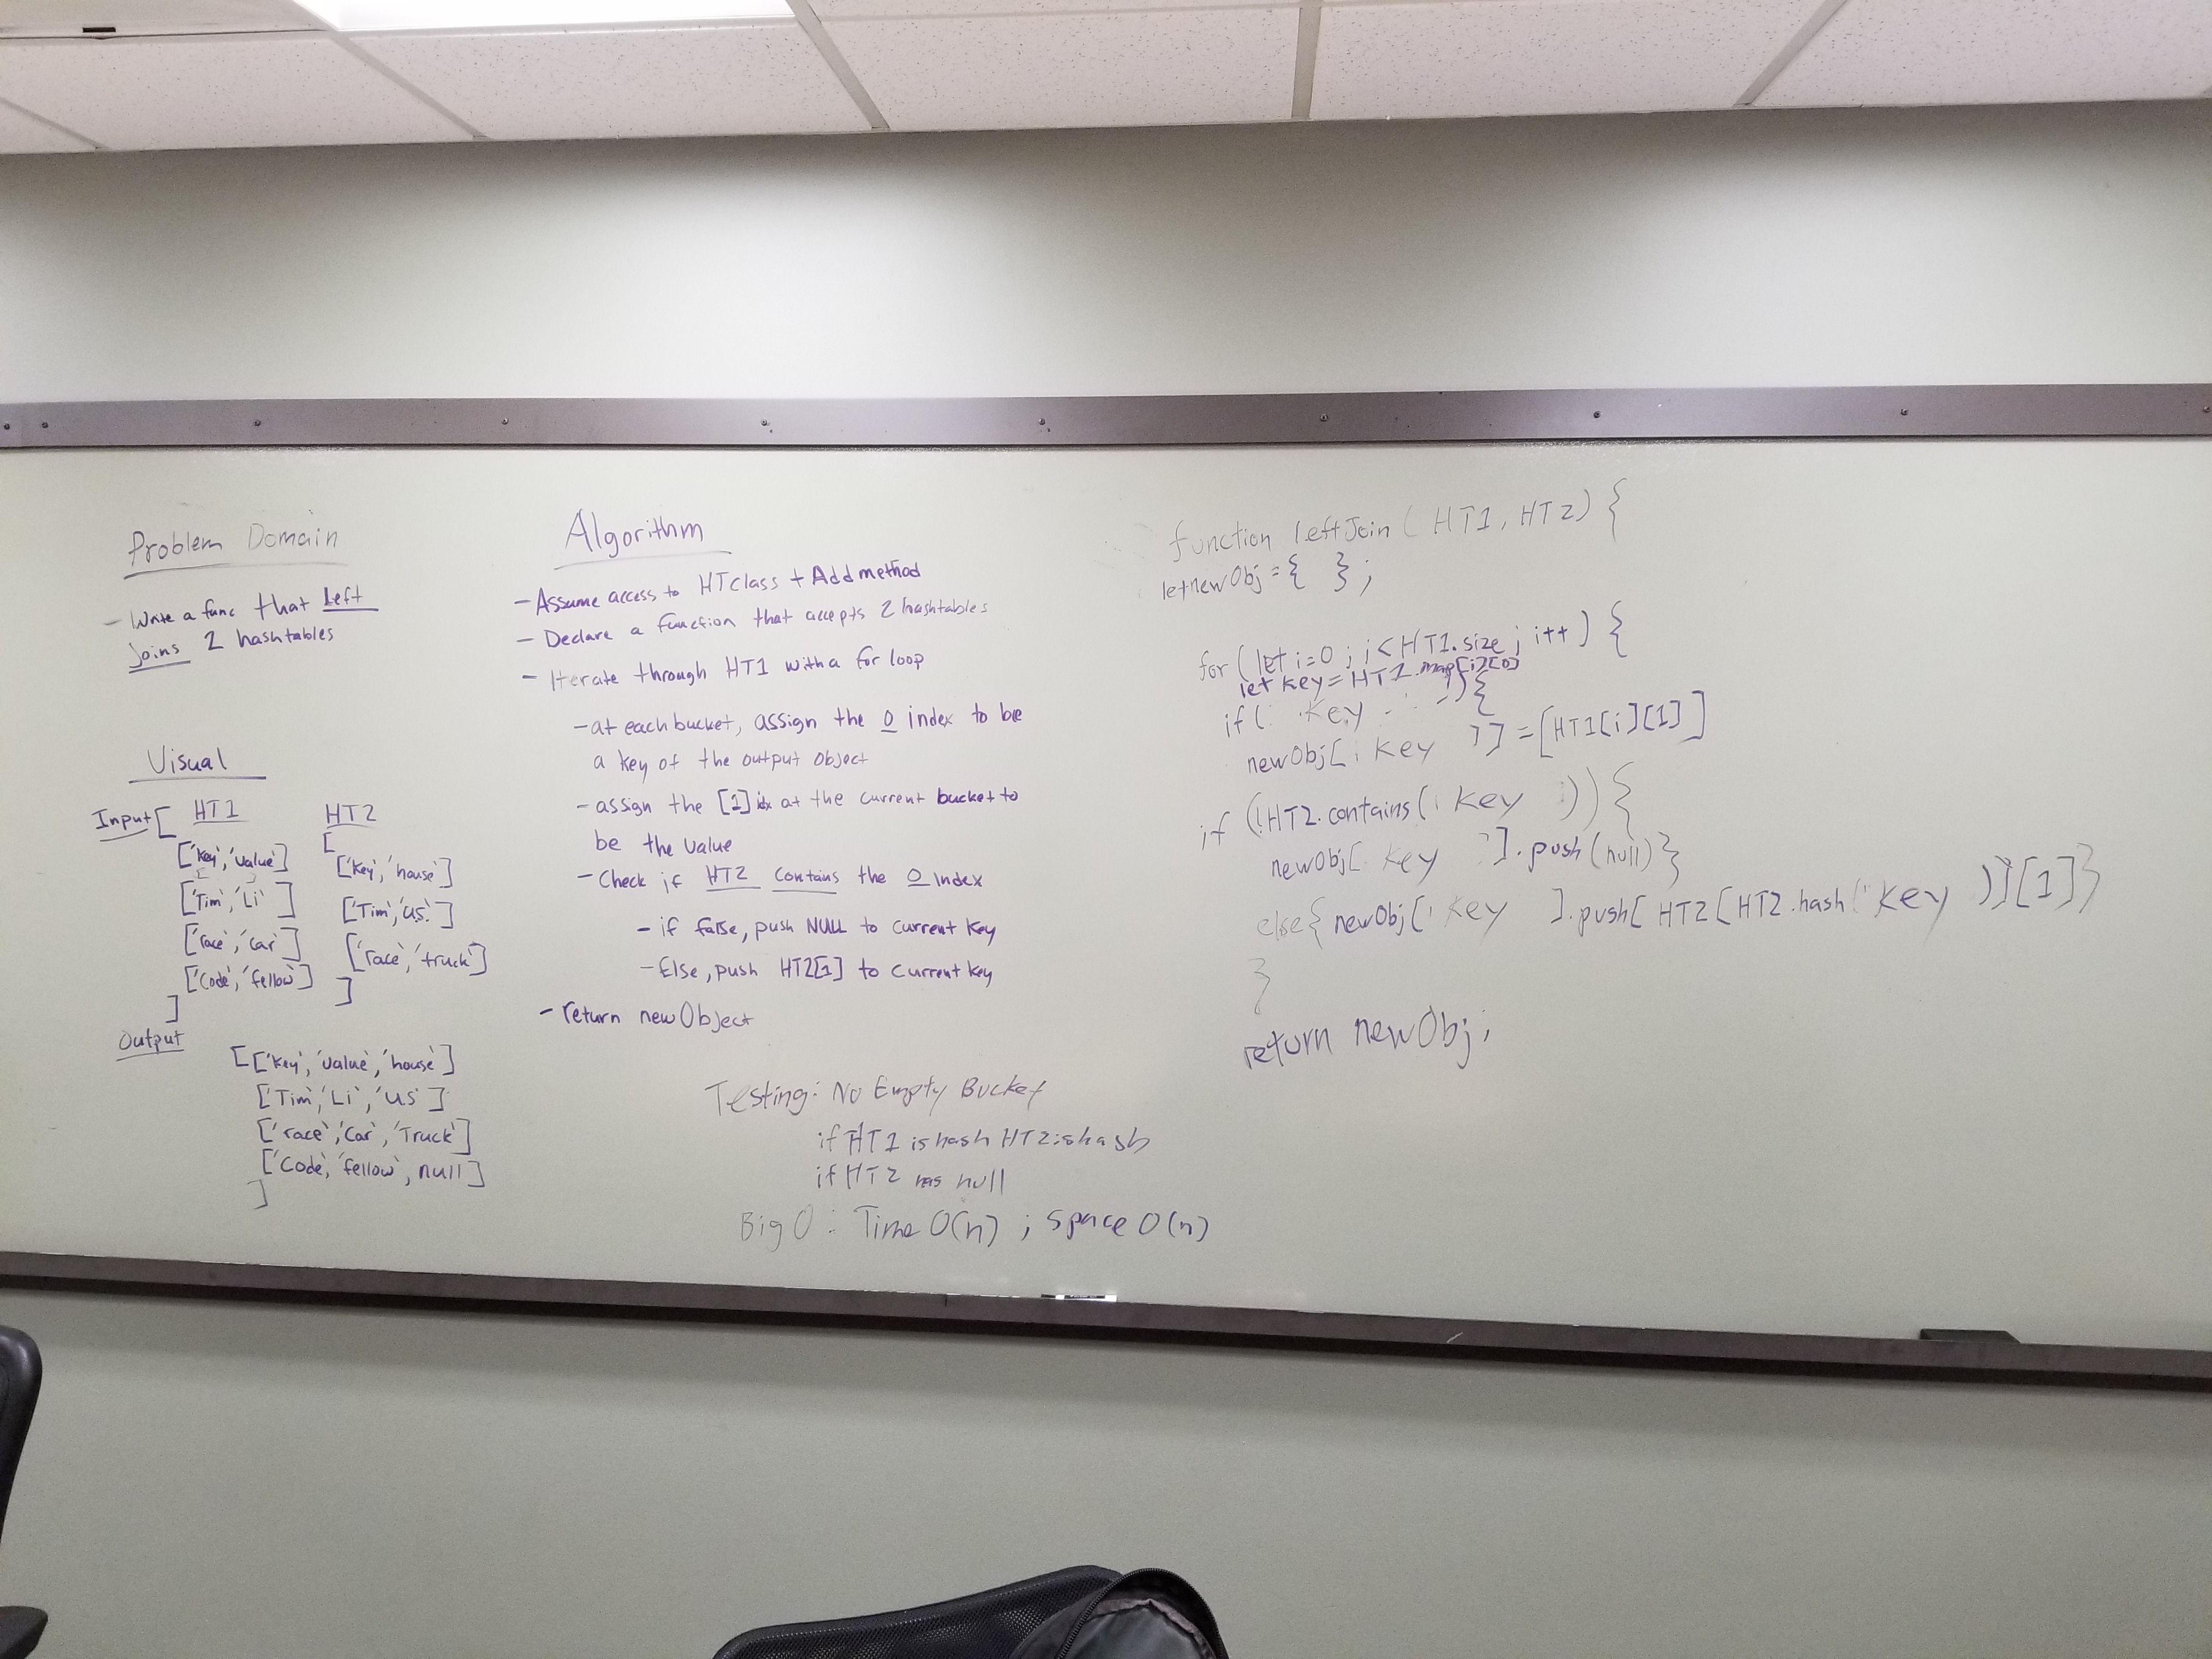 Problem Domain
- Write a func that Left
Joins 2 hashtables
Visual
Input [ HT1 HT2
[
['Key', 'Value'] ['Key', 'house']
['Tim', 'Li'] ['Tim', 'US']
['race', 'car'] ['race', 'truck']
['Code', 'fellow'] ]
]
Output
[['Key', 'Value', 'house']
['Tim', 'Li', 'US']
['race', 'Car', 'Truck']
['Code', 'fellow', null]
]
Algorithm
- Assume access to HT class + Add method
- Declare a function that accepts 2 hashtables
- Iterate through HT1 with a for loop
- at each bucket, assign the 0 index to be
a key of the output object
- assign the [1] idx at the current bucket to
be the value
- Check if HT2 contains the 0 index
- if false, push NULL to current key
- Else, push HT2[1] to current key
- return newObject
Testing: No Empty Bucket
if HT1 is hash HT2 is hash
if HT2 has null
Big O : Time O(n) ; Space O(n)
function leftJoin (HT1, HT2) {
let newObj = { };
for (let i=0 ; i < HT1.size ; i++ ) {
let key = HT1.map[i][0]
if( key ) {
newObj[ key ] = [HT1[i][1]]
if (!HT2.contains( key )) {
newObj[ key ].push(null)}
else{ newObj[ key ].push[ HT2[HT2.hash( key )][1]}
}
return newObj;